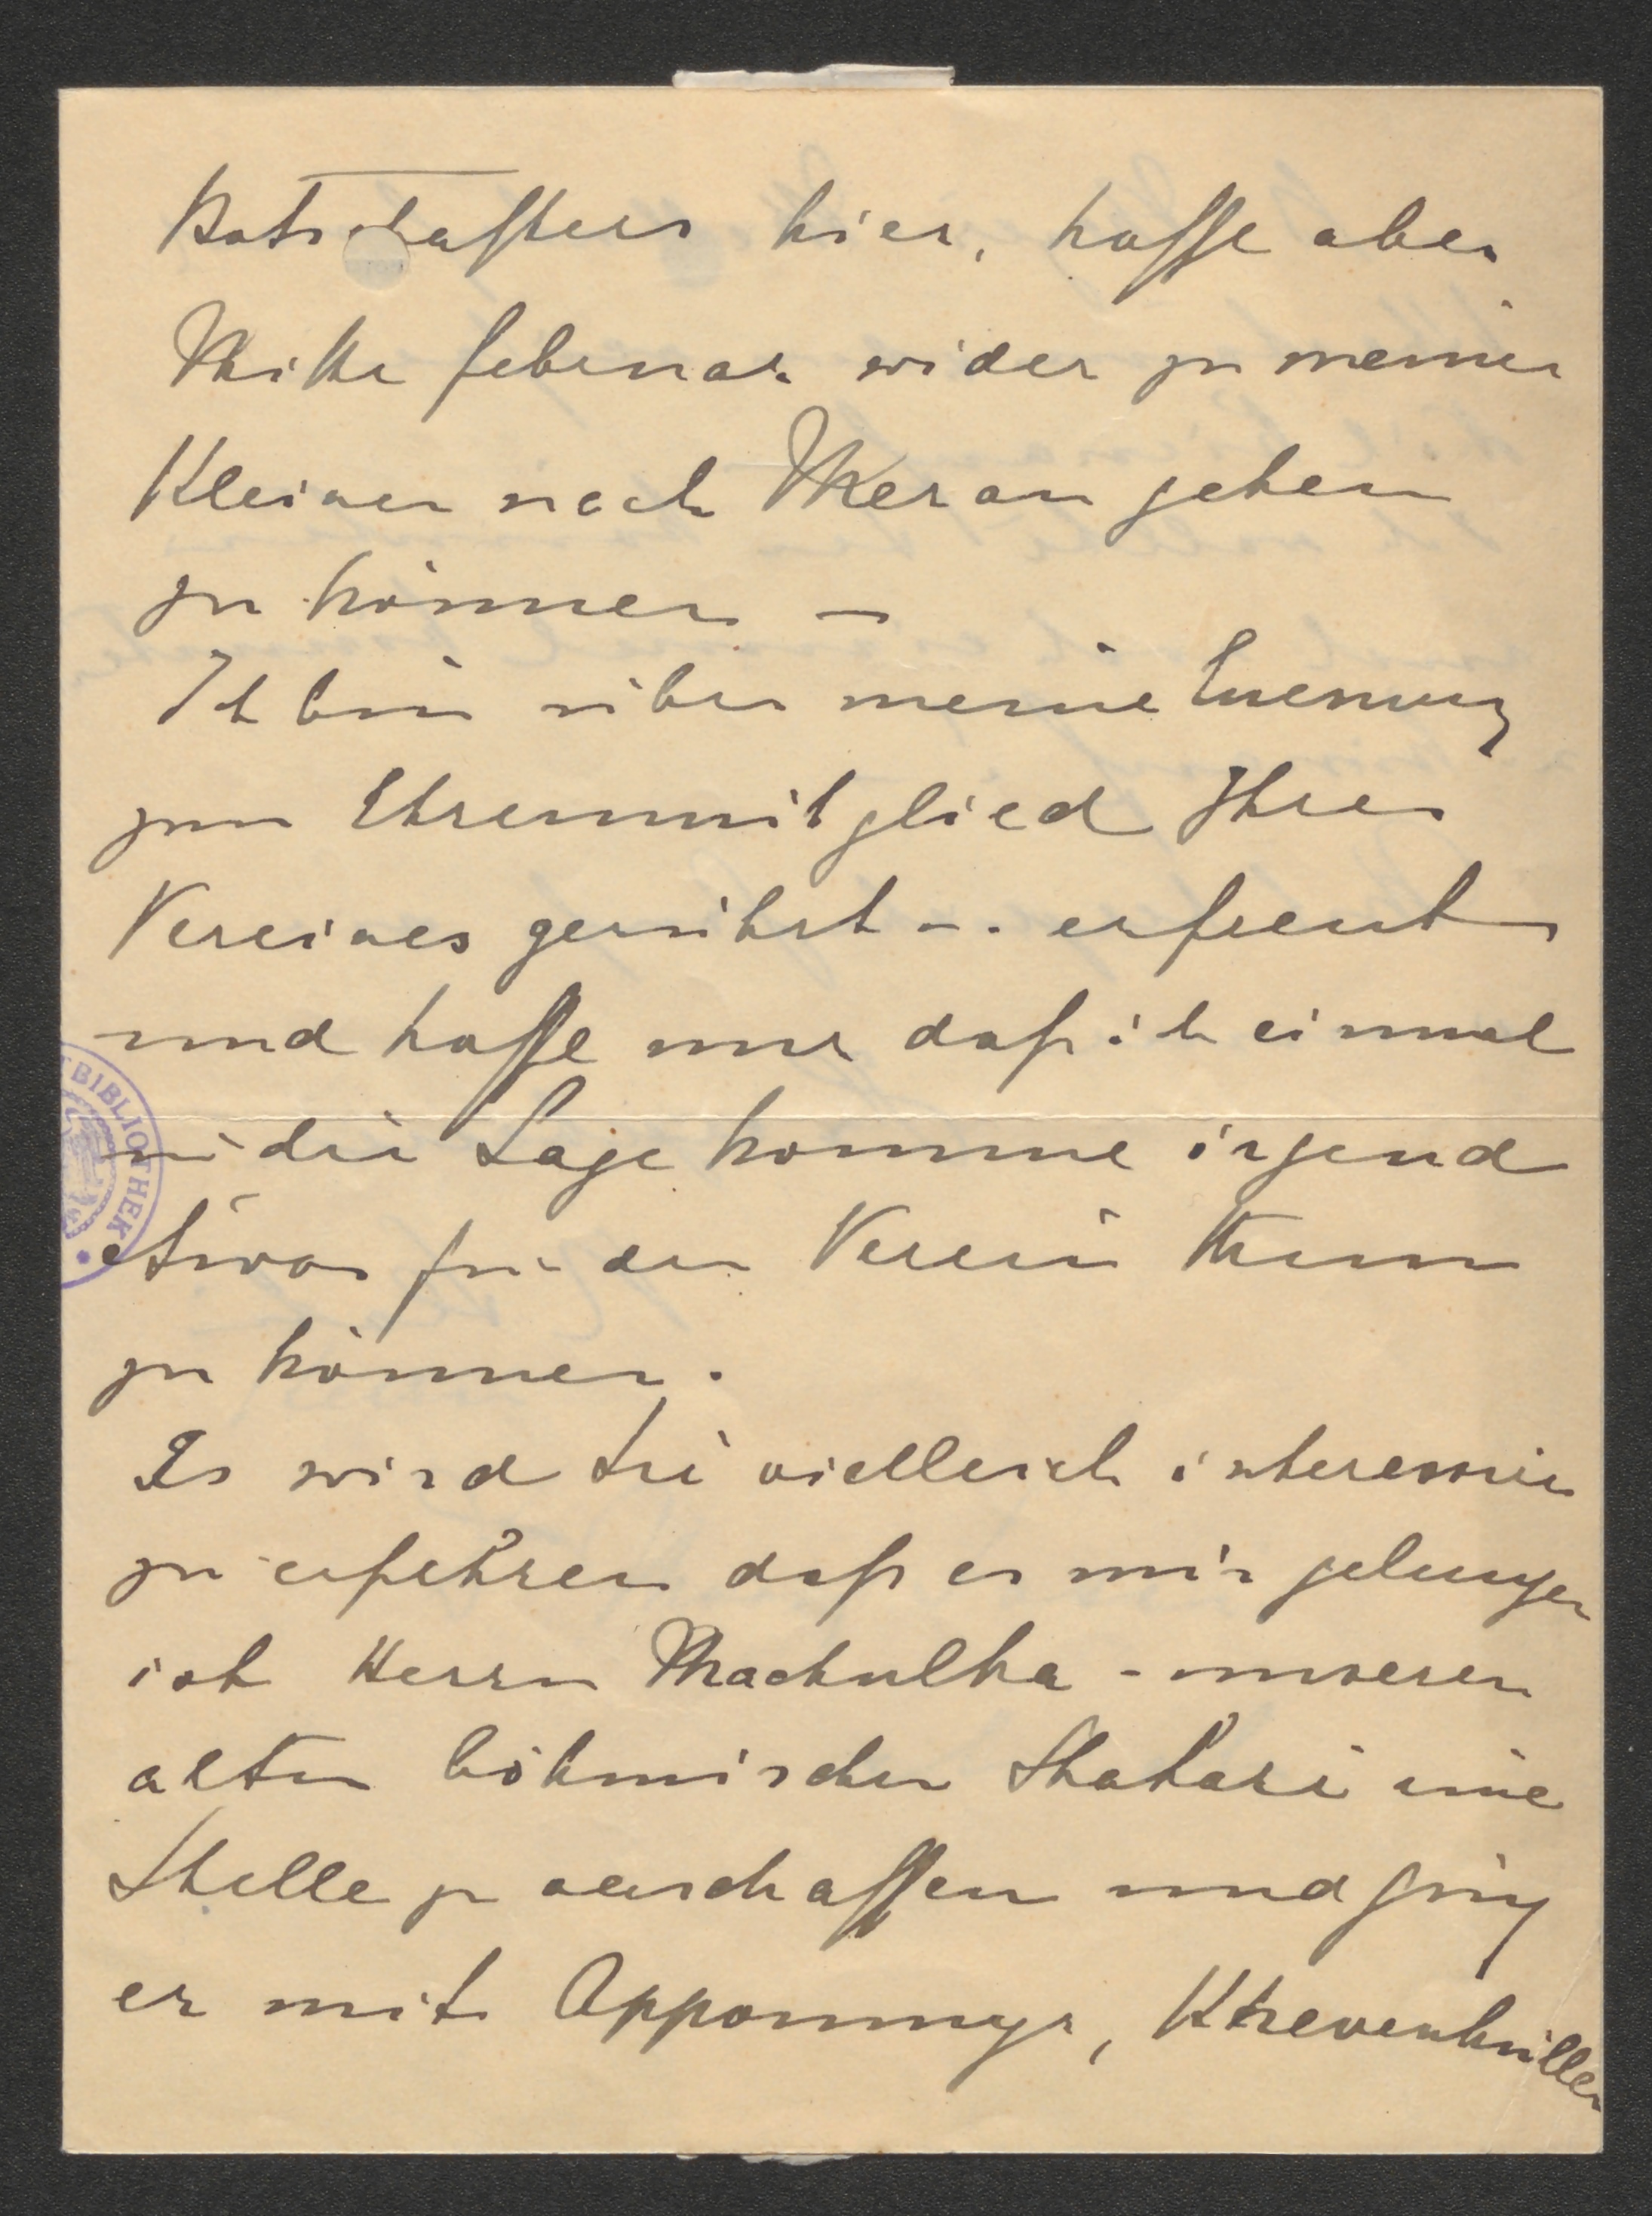 Botschafters hier, hoffe aber
Mitte Februar wider zu meiner
Kleinen nach Meran gehen
zu können –
Ich bin über meine Enenung
zum Ehrenmitglied Ihres
Vereines gerührt u. erfreut
und hoffe nur daß ich einmal
in die Lage komme irgend
etwas für den Verein thun
zu können.
Es wird Sie vielleich interessiren
zu erfahren daß es mir gelungen
ist Herrn Machulka - unseren
alten böhmischen Shakari eine
Stelle zu verschaffen und ging
er mit Apponnyr, Khevenhüller
BIBLIOTHEK